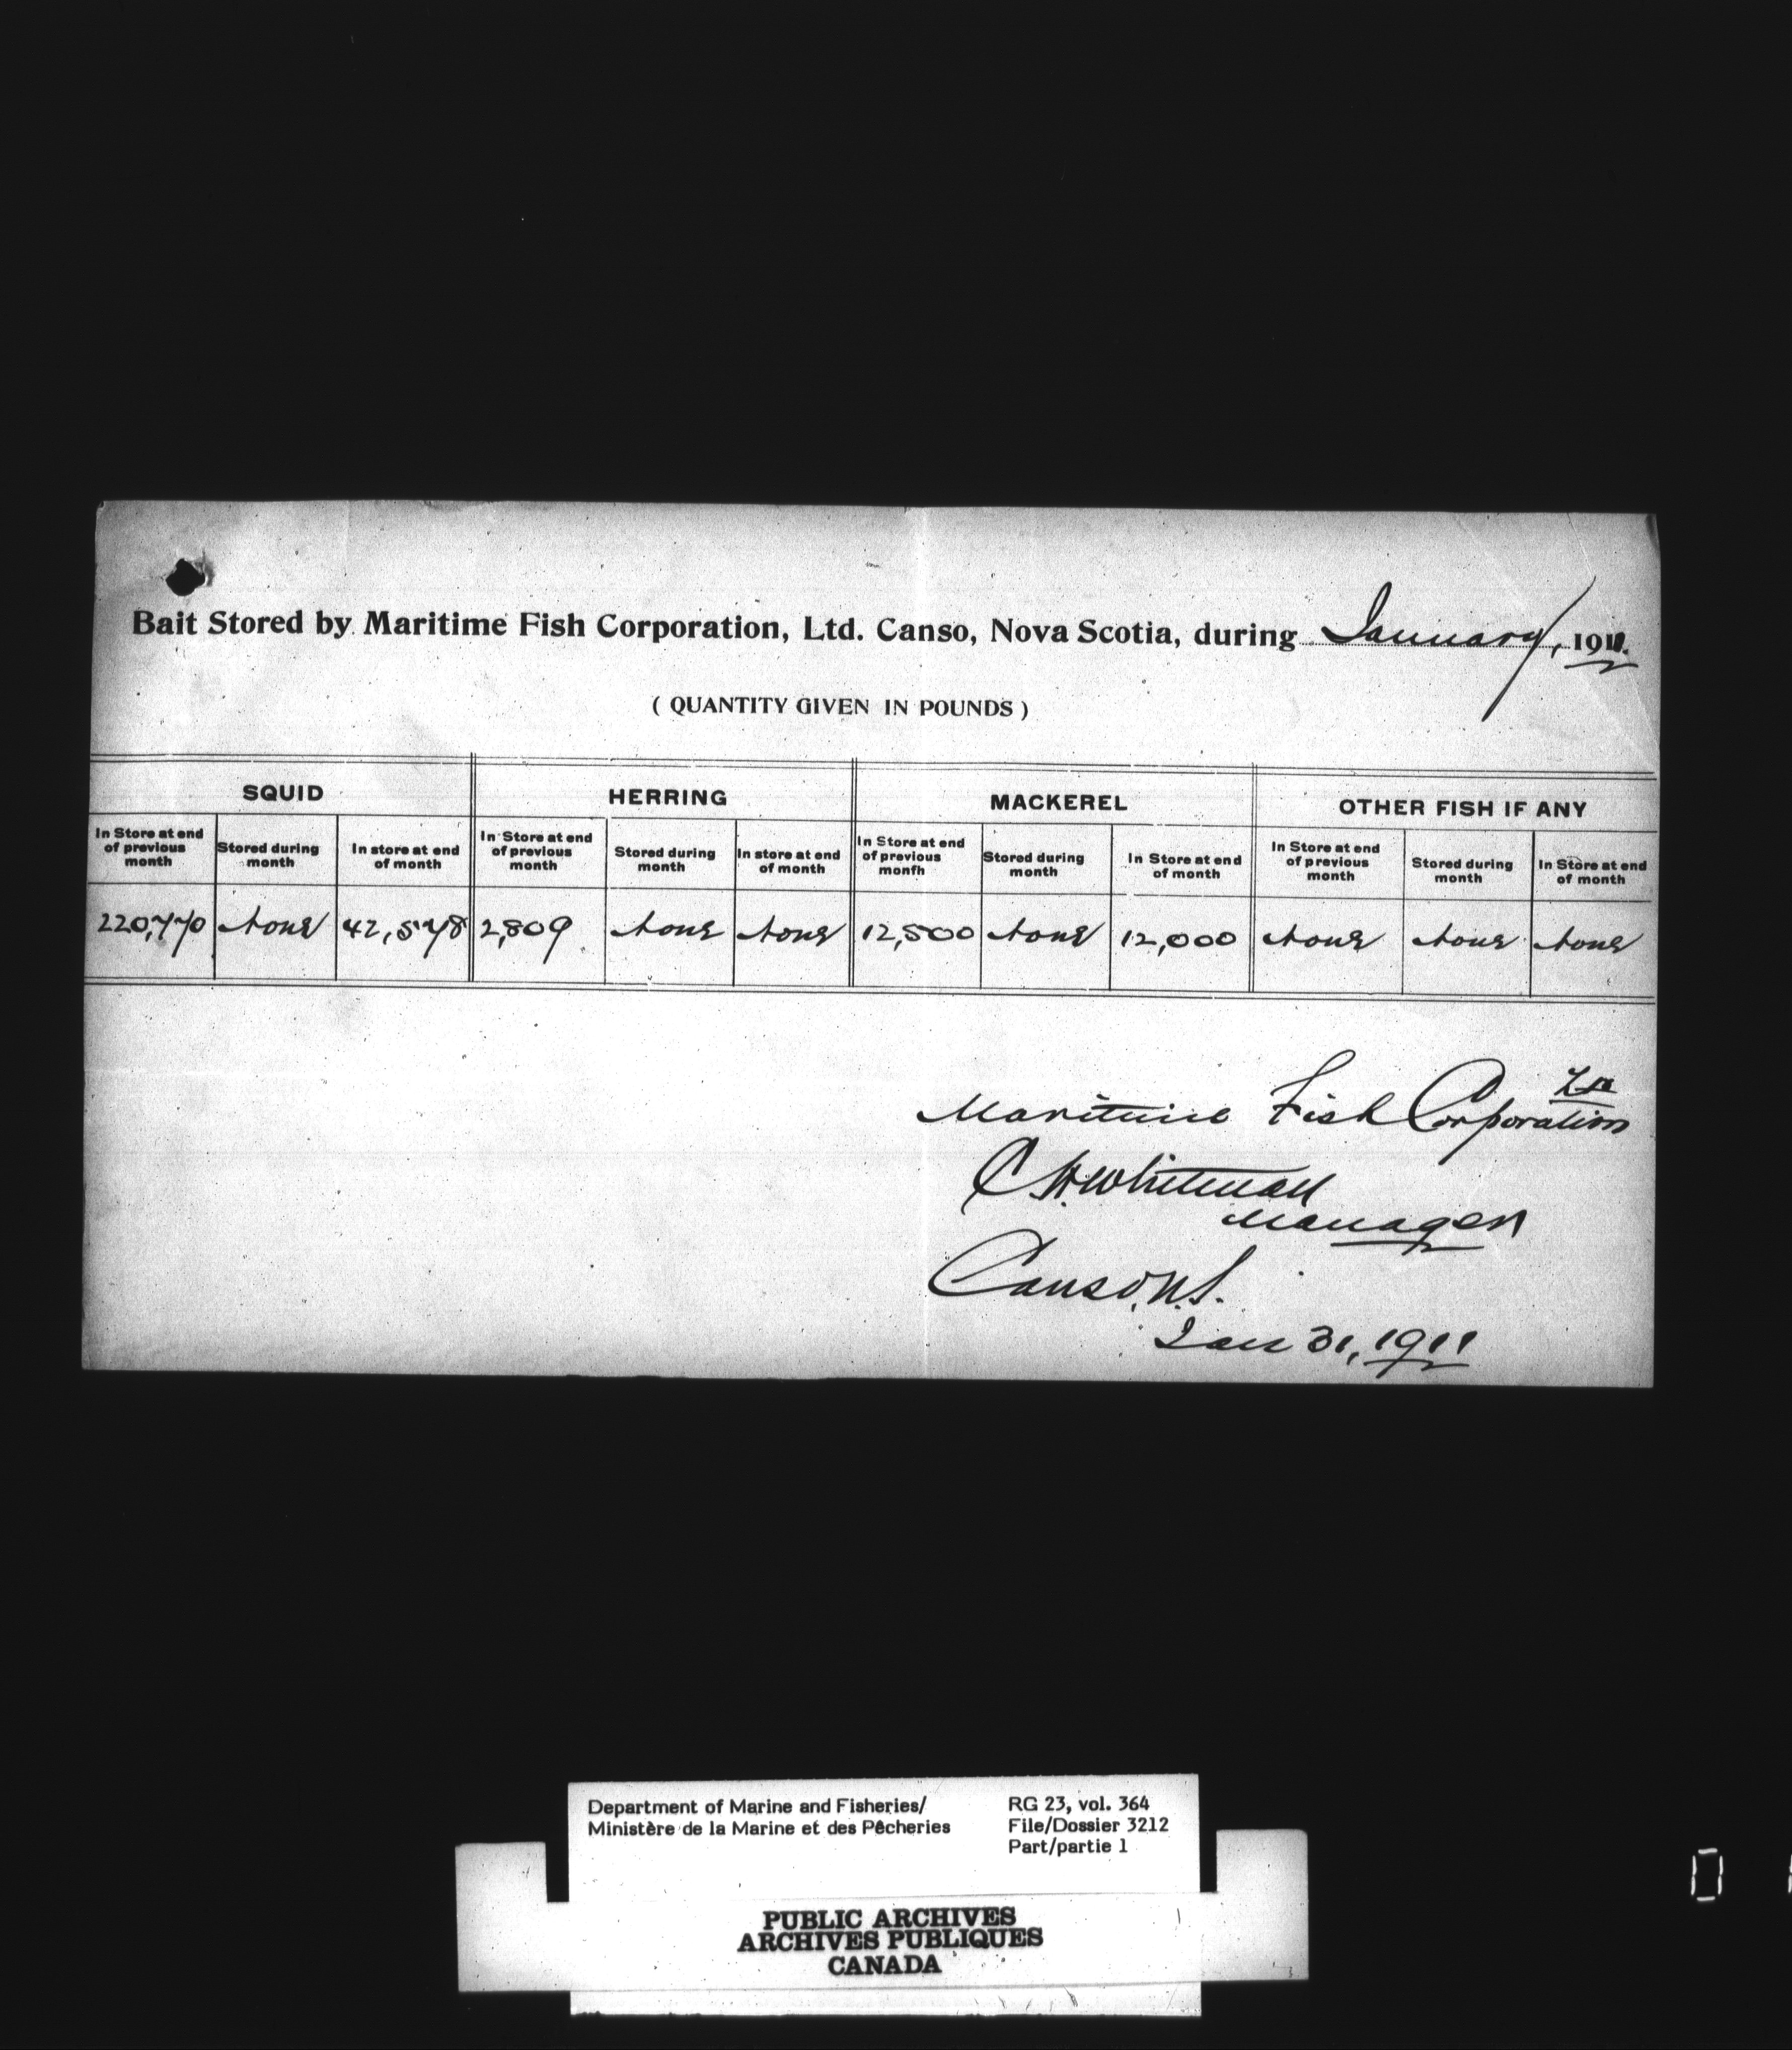 Bait Stored by Maritime Fish Corporation, Ltd. Canso, Nova Scotia, during January, 1911.
( QUANTITY GIVEN IN POUNDS )
SQUID HERRING MACKEREL OTHER FISH IF ANY
In Store at end of previous month Stored during month In store at end of month In Store at end of previous month Stored during month In store at end of month In Store at end of previous monfh Stored during month In Store at end of month In Store at end of previous month Stored during month In Store at end of month
220,770 None 42,578 2,809 None None 12,500 None 12,000 None None None
Maritime Fish Corporation Ltd
C H Whitman
Manager
Canso, N.S.
Jan 31, 1911
Department of Marine and Fisheries/
Ministère de la Marine et des Pêcheries
RG 23, vol. 364
File/Dossier 3212
Part/partie 1
PUBLIC ARCHIVES
ARCHIVES PUBLIQUES
CANADA
0